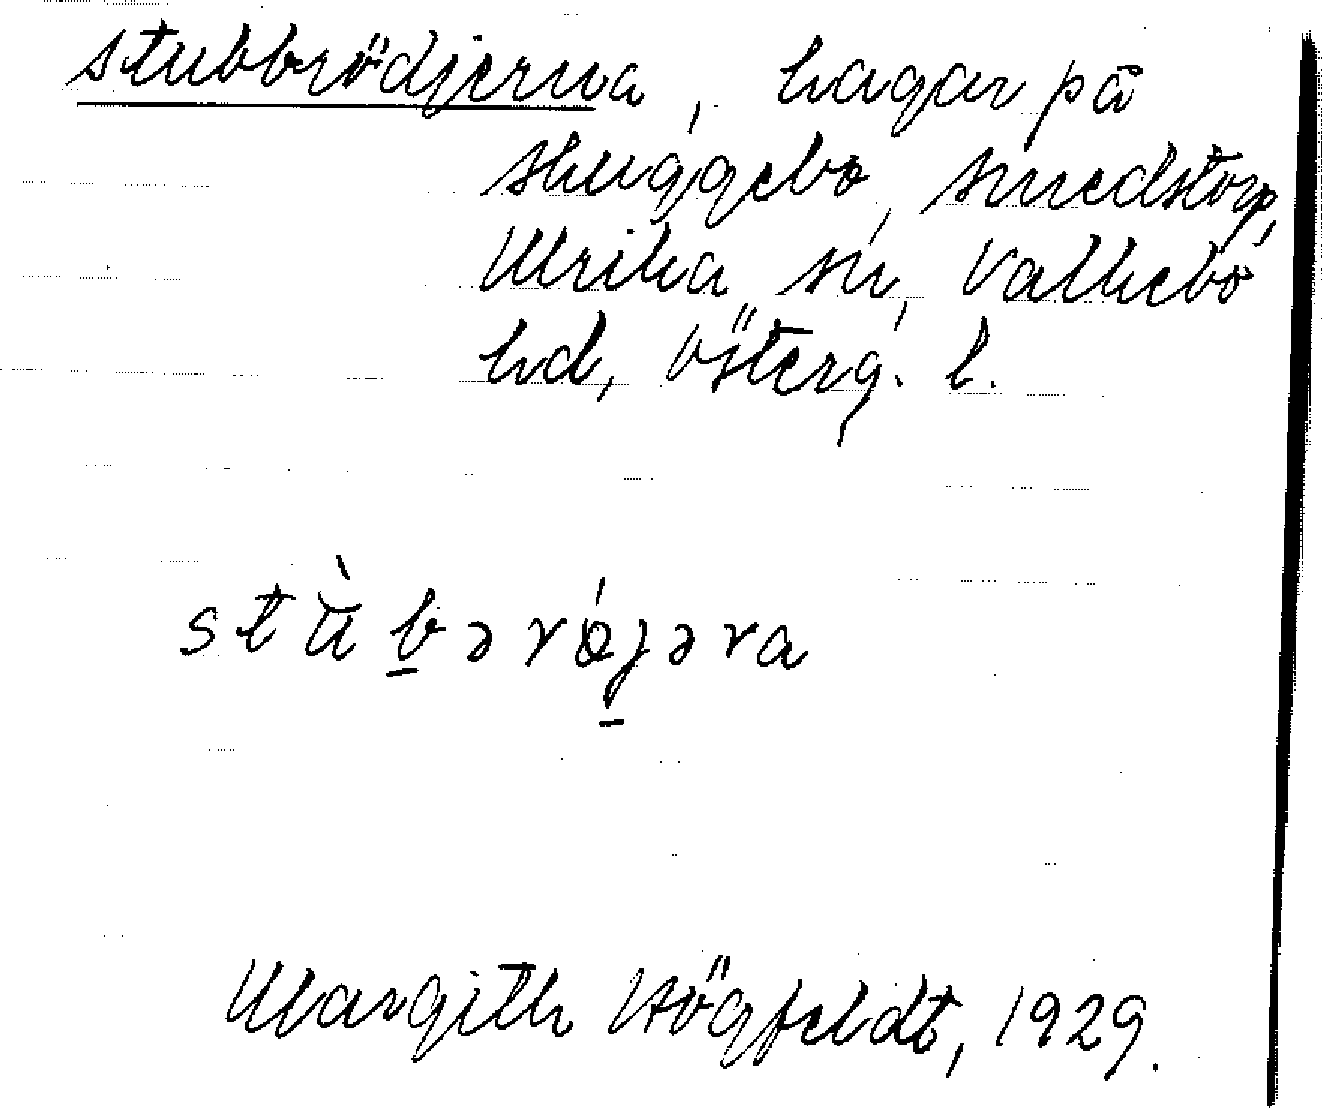 Stubbrödjerna, hagar på
Skuggebo, Smedstorp,
Ulrika sn, Valkebo
hd, Österg. l.
stùbərǿjəra
Margith Högfeldt, 1929.